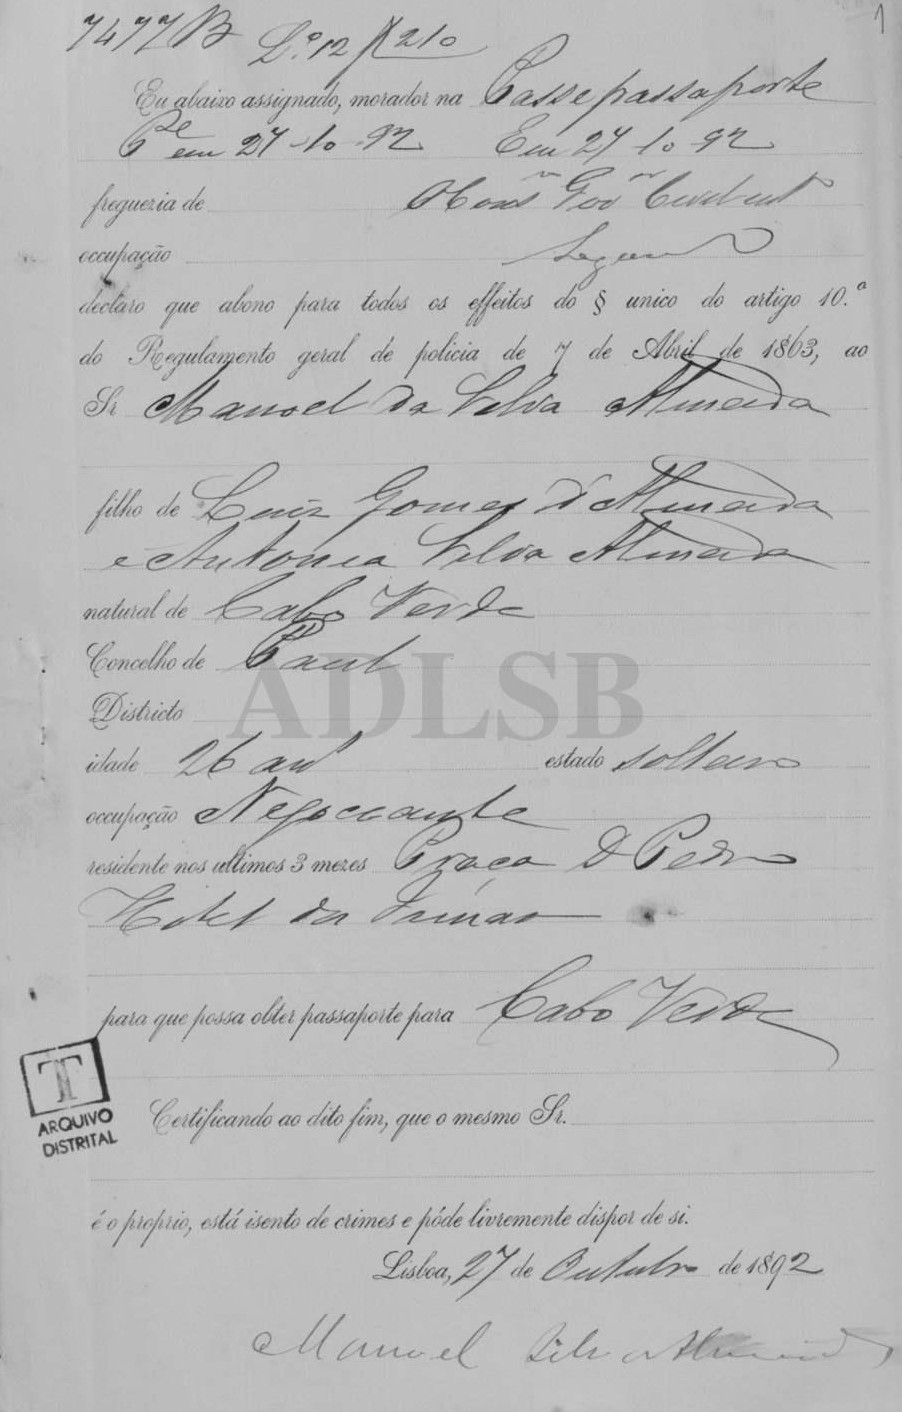 7477 B L.º 12 210
1
Eu abaixo assignado, morador na Passe passaporte
P.e em 27-10-92 Em 27-10-92
freguezia de
occupação
declaro que abono para todos os effeitos do § unico do artigo 10.º
do Regulamento geral de policia de 7 de Abril de 1863, ao
Sr Manoel da Silva Almeida
filho de Luiz Gomes d'Almeida
e Antonia Silva Almeida
natural de Cabo Verde
Concelho de Paul
Districto
ADLSB
idade 26 an estado solteiro
occupação Negociante
residente nos ultimos 3 mezes Praça D Pedro
Hotel
para que possa obter passaporte para Cabo Verde
T
ARQUIVO
DISTRITAL
Certificando ao dito fim, que o mesmo Sr.
é o proprio, está isento de crimes e póde livremente dispor de si.
Lisboa, 27 de Outubro de 1892
Manoel Silva Almeida